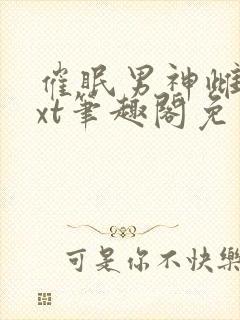 催眠男神雌
xt笔趣阁免
可是你不快樂